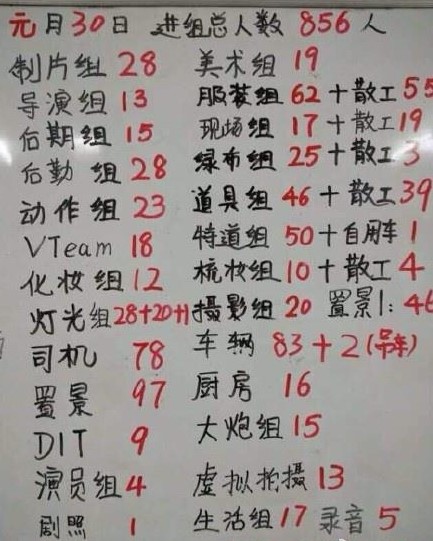 元月30日 进组总人数 856人
制片组 28 美术组 19
导演组 13 服装组 62+散工55
后期组 15 现场组 17+散工19
后勤组 28 绿布组 25+散工3
动作组 23 道具组 46+散工39
VTeam 18 特道组 50+自用车1
化妆组 12 梳妆组 10+散工4
灯光组 28+20+1 摄影组 20 置景1:46
司机 78 车辆 83+2(吊车)
置景 97 厨房 16
DIT 9 大炮组 15
演员组 4 虚拟拍摄 13
剧照 1 生活组 17 录音 5